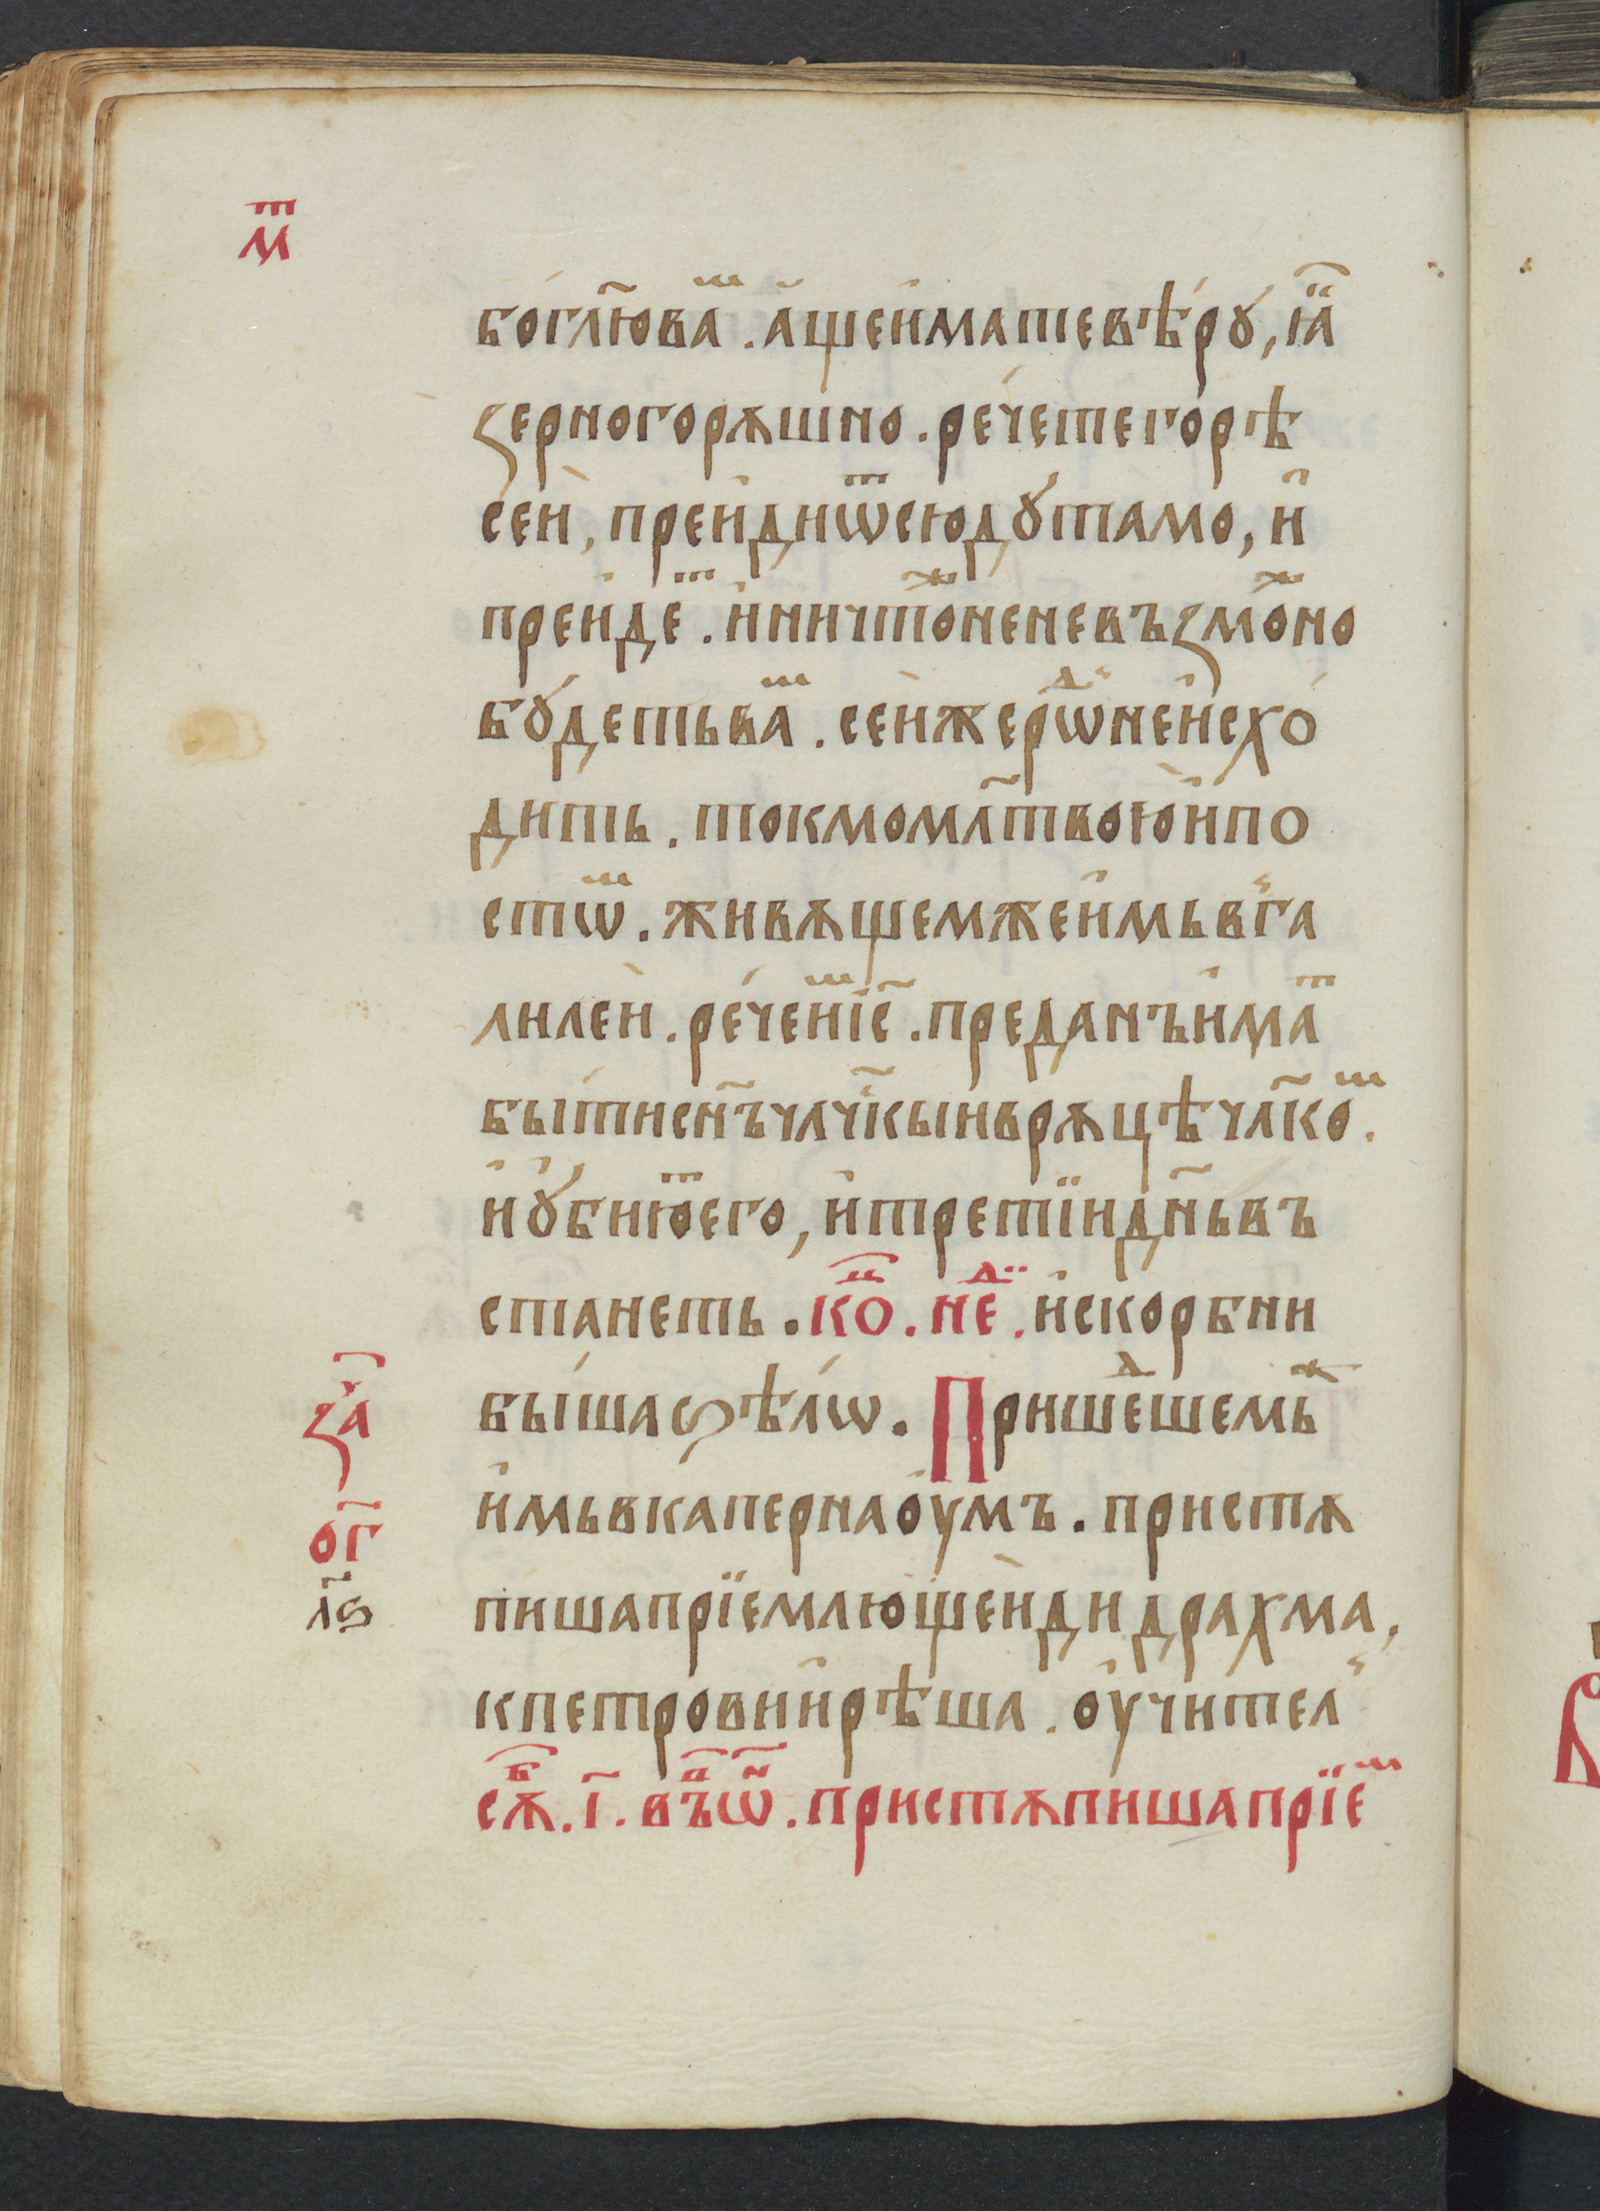 мⷮ
бо́ гл҃ю ваⷨ . а҆́ще и҆мате вѣ́рꙋ, ꙗ҆ⷦ
зерно горѫшно . рече́те горѣ
се́й, преи҆ди ѿсю́дꙋ тамо, и҆
преи҆деⷮ . и҆ ничтоⷤ не невъзмоⷤно
бꙋ́деть ваⷨ . се́й же роⷣ не и҆схо́
дить . токмо мл҃твою и҆ по
стѡⷨ . живѫщем же и҆мь в га
лиле́и . рече́ иⷨ і҆с҃ . преда́нъ и҆маⷮ
бы́ти сн҃ъ чл҃чкыи в рѫцѣ чл҃коⷨ .
и҆ ᲂу҆бию́ⷮ его, и҆ третїи дн҃ь въ
станеть . коⷩ . неⷣ . и҆ скорбни
бы́ша ѕѣлѡ̀ . Пришеⷣшемь ⷤ
и҆мь в капернаᲂу́мъ . пристѫ
пиша прїемлющеи дидрахма,
к петрови и҆ рѣша . ᲂу҆чител
сѫⷠ . і҃ . въ ⷩ҇ѡ . пристѫпиша прїеⷨ
заⷱ
ог҃
л҃ѕ